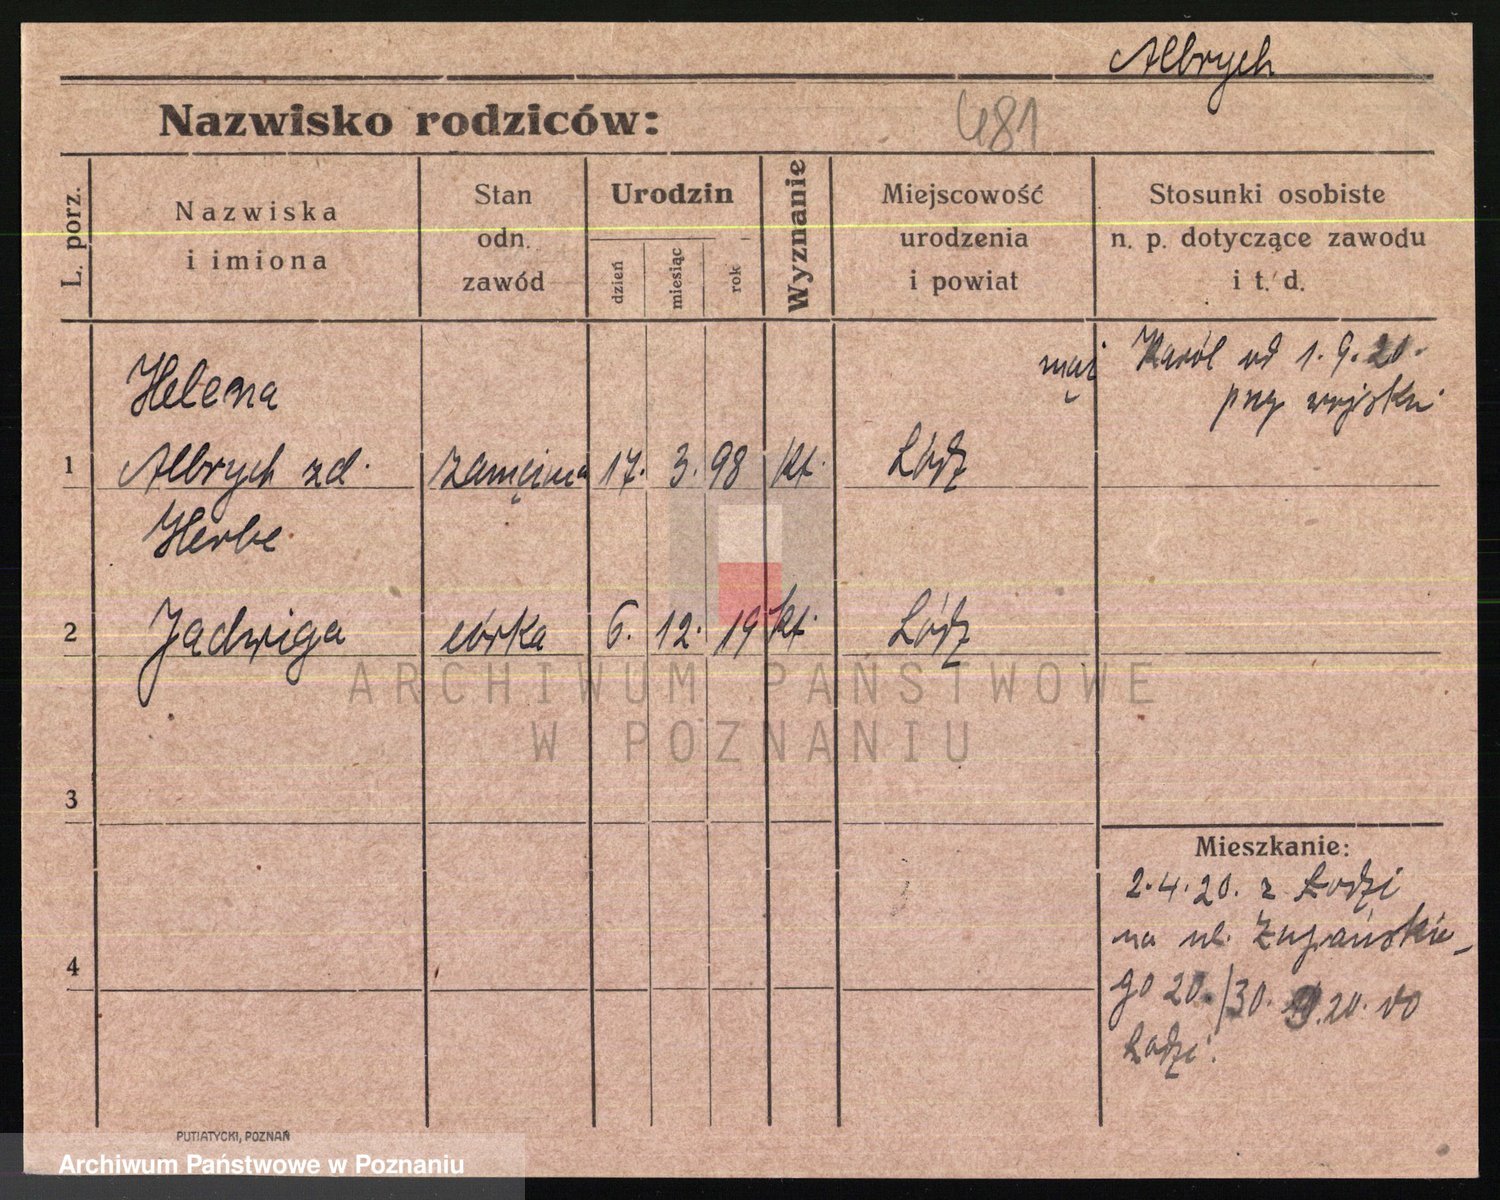 Albrych
Nazwisko rodziców:
481
L. porz.
Nazwiska
i imiona
Stan
odn.
zawód
Urodzin
dzień
miesiąc
rok
Wyznanie
Miejscowość
urodzenia
i powiat
Stosunki osobiste
n. p. dotyczące zawodu
i t. d.
mąż Karól od 1.9.20.
przy wojsku
Helena
1 Albrych zd. zamężna 17. 3. 98 kt. Łódź
Herbe
2 Jadwiga córka 6. 12. 19 kt. Łódź
ARCHIWUM PAŃSTWOWE
W POZNANIU
3
Mieszkanie:
2.4.20. z Łodzi
na ul. Żupańskie-
4
go 20./30. 9.20. do
Łodzi.
PUTIATYCKI, POZNAŃ
Archiwum Państwowe w Poznaniu